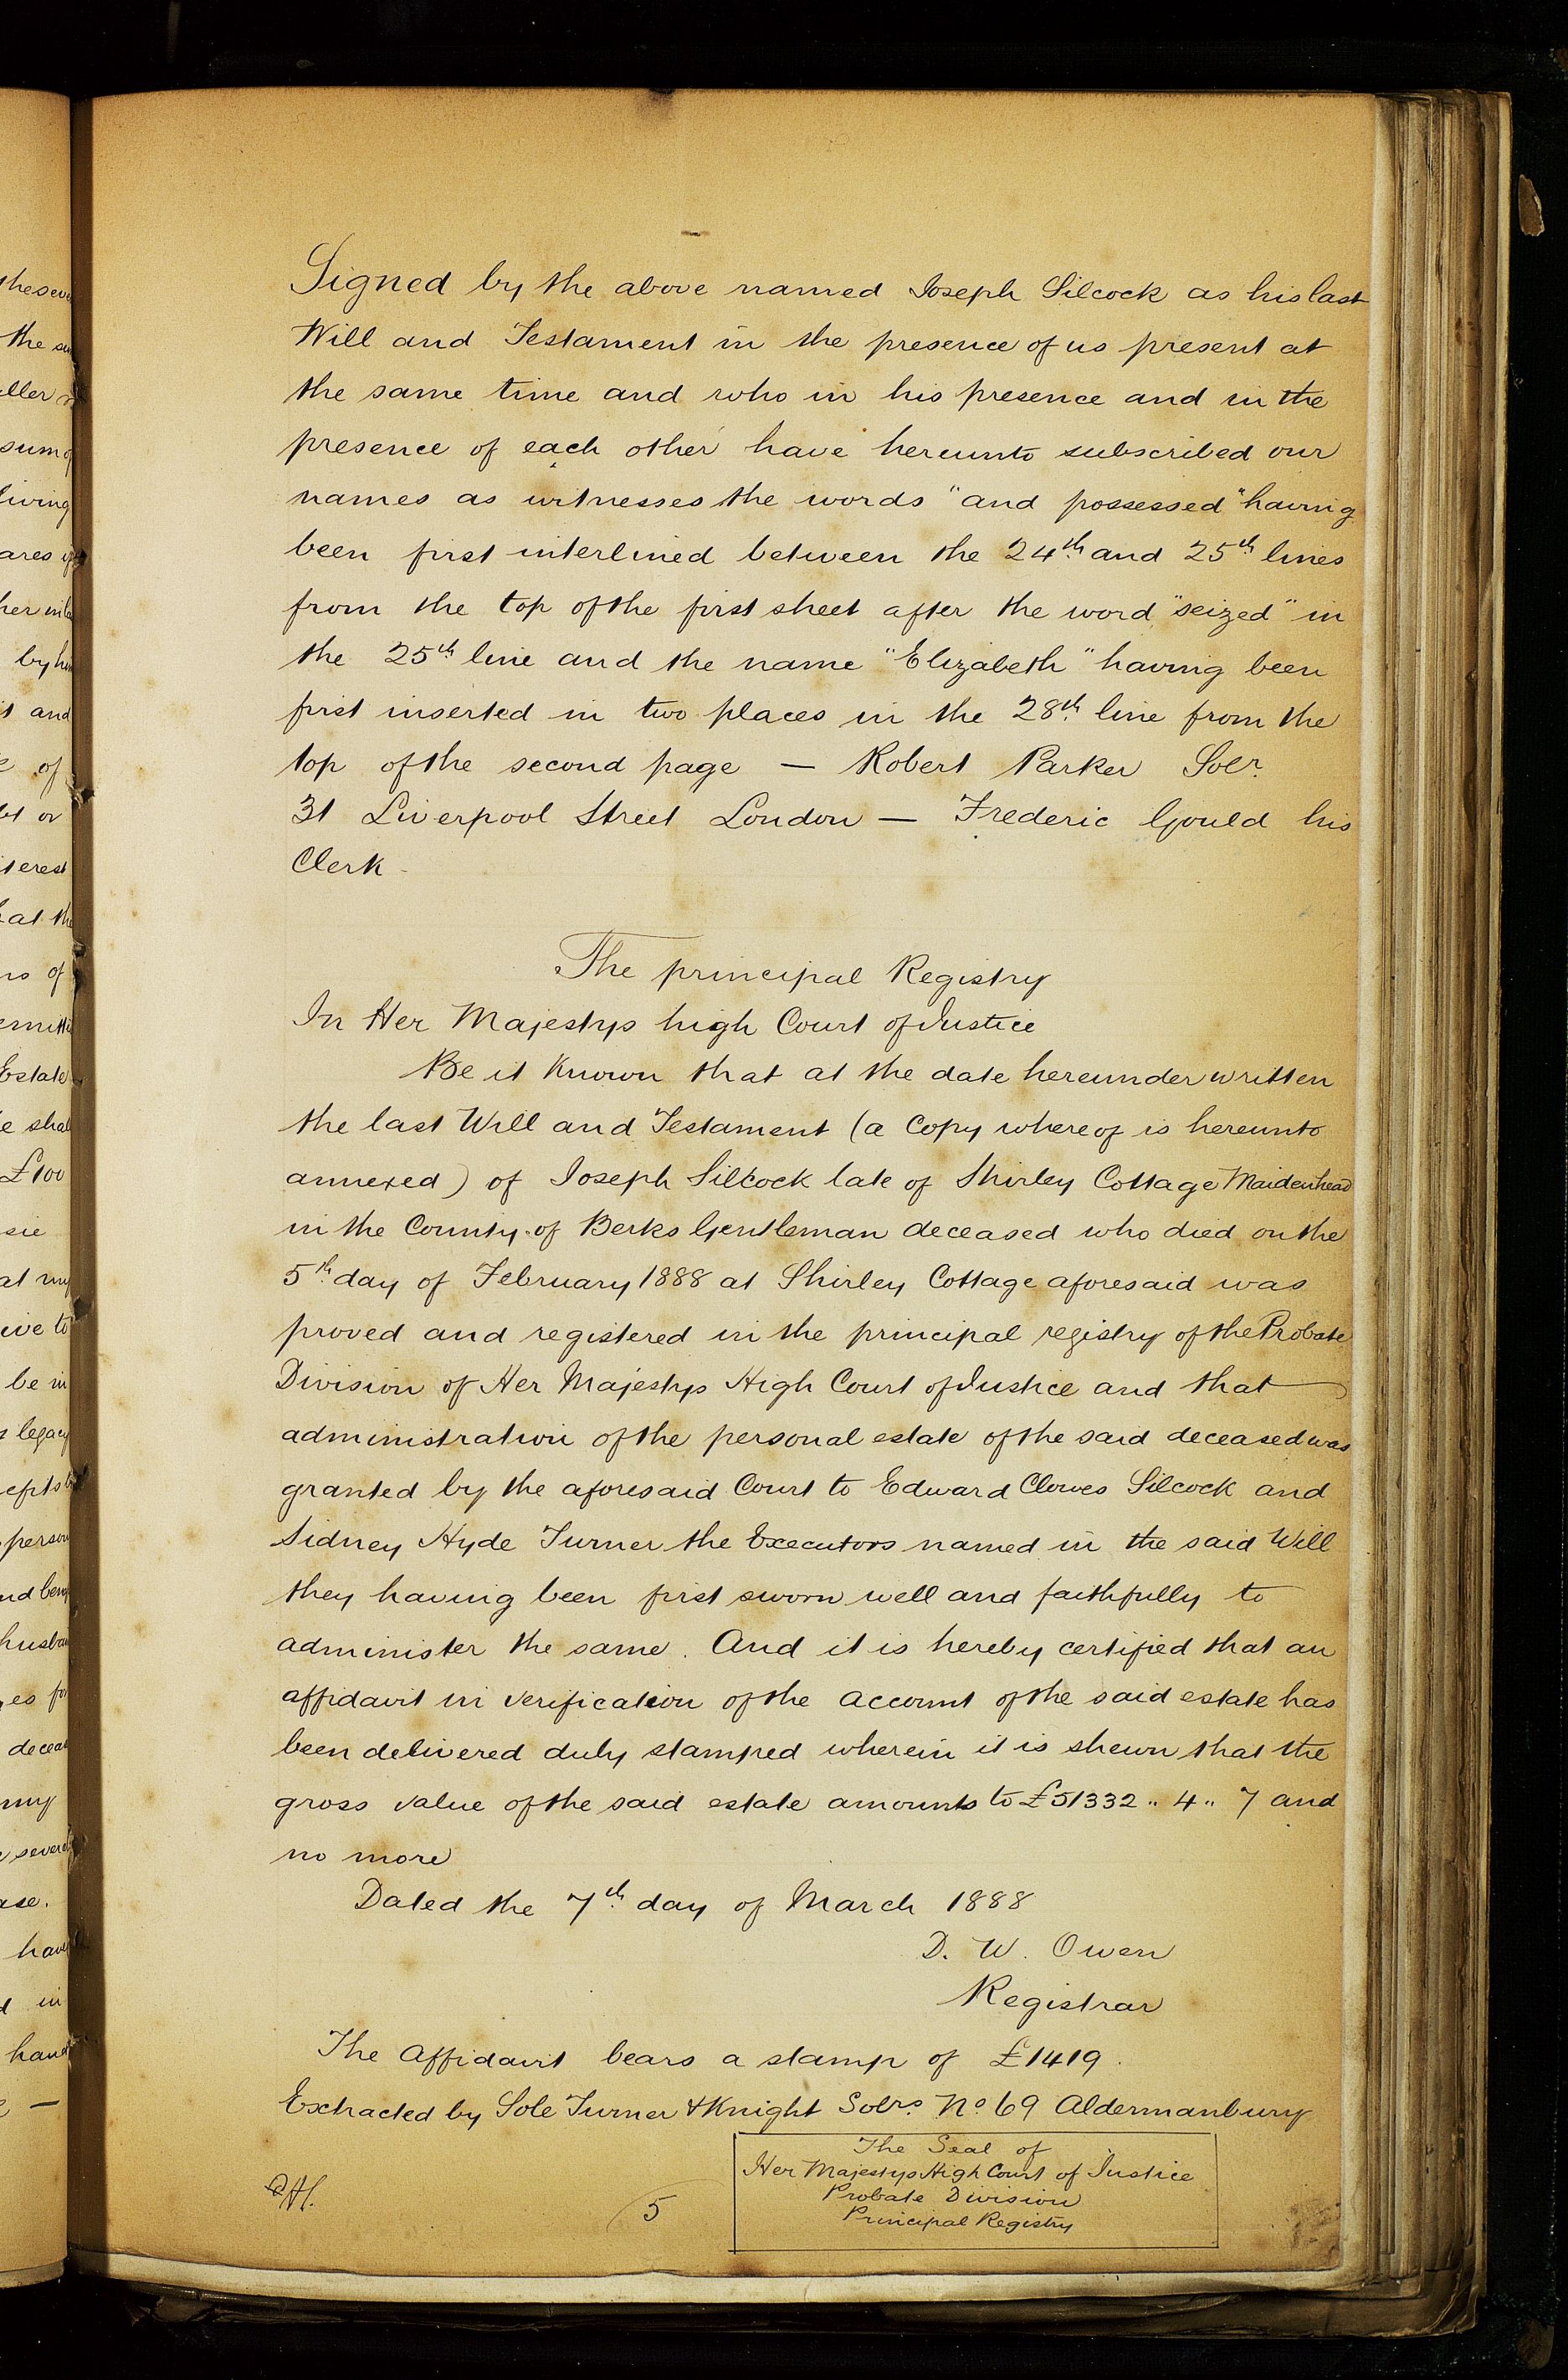 Signed by the above named Joseph Silcock as his last
Will and Testament in the presence of us present at
the same time and who in his presence and in the
presence of each other have hereunto subscribed our
names as witnesses the words "and possessed" having
been first interlined between the 24th and 25th lines
from the top of the first sheet after the word "seized" in
the 25th line and the name "Elizabeth" having been
first inserted in two places in the 28th line from the
top of the second page — Robert Parker Solr.
31 Liverpool Street London — Frederic Gould his
Clerk
The principal Registry
In Her Majestys high Court of Justice
Be it known that at the date hereunder written
the last Will and Testament (a Copy whereof is hereunto
annexed) of Joseph Silcock late of Shirley Cottage Maidenhead
in the County of Berks Gentleman deceased who died on the
5th day of February 1888 at Shirley Cottage aforesaid was
proved and registered in the principal registry of the Probate
Division of Her Majestys High Court of Justice and that
administration of the personal estate of the said deceased was
granted by the aforesaid Court to Edward Clowes Silcock and
Sidney Hyde Turner the Executors named in the said Will
they having been first sworn well and faithfully to
administer the same. And it is hereby certified that an
affidavit in verification of the account of the said estate has
been delivered duly stamped wherein it is shewn that the
gross value of the said estate amounts to £51332 .. 4 .. 7 and
no more
Dated the 7th day of March 1888
D. W. Owen
Registrar
The Affidavit bears a stamp of £1419.
Extracted by Sole Turner & Knight Solrs. No 69 Aldermanbury
The Seal of
Her Majestys High Court of Justice
Probate Division
Principal Registry
5